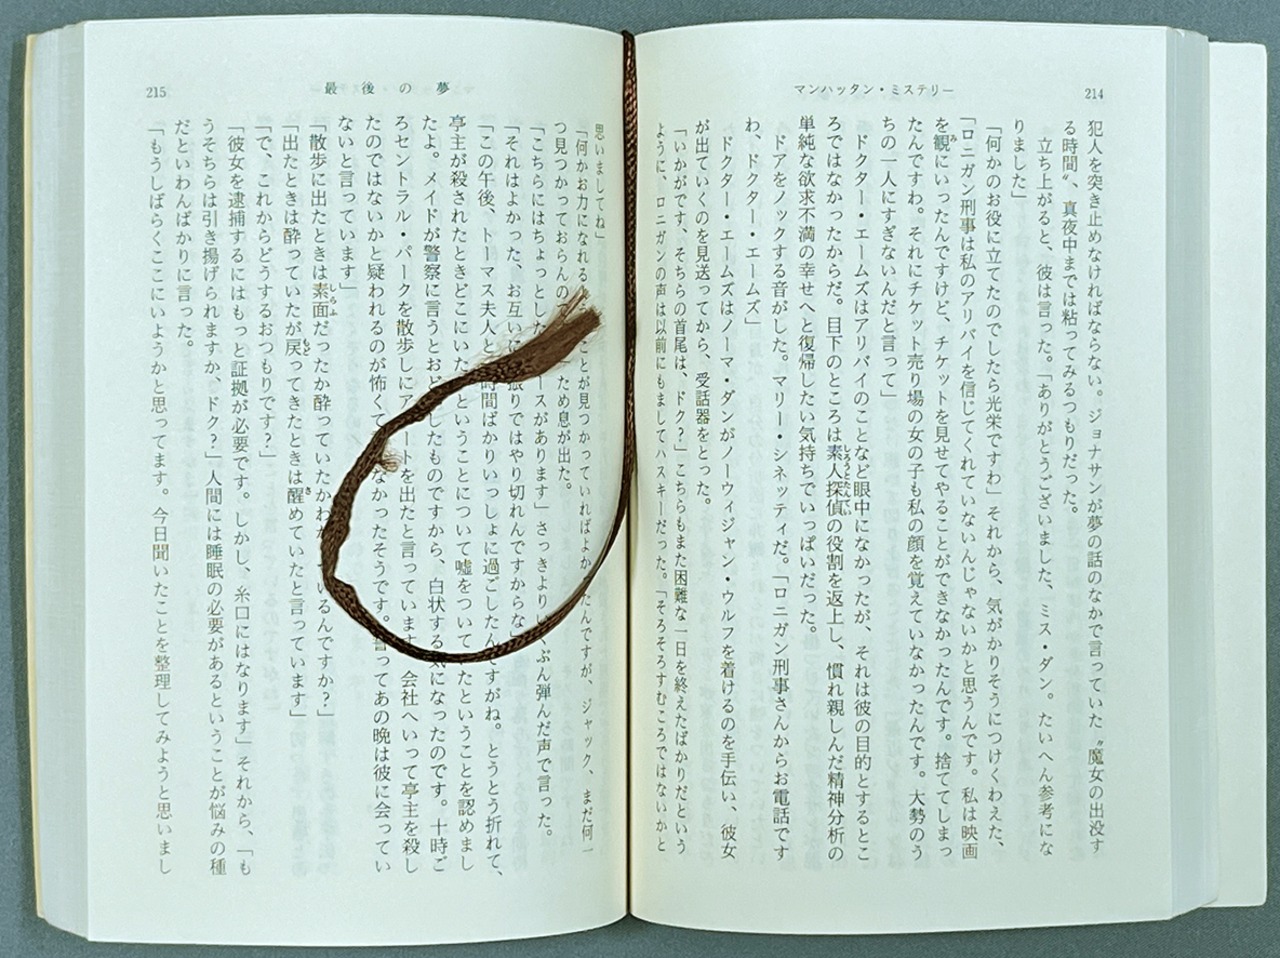 214
マンハッタン・ミステリー
犯人を突き止めなければならない。ジョナサンが夢の話のなかで言っていた〝魔女の出没す
る時間〟、真夜中までは粘ってみるつもりだった。
立ち上がると、彼は言った。「ありがとうございました、ミス・ダン。たいへん参考にな
りました」
「何かのお役に立てたのでしたら光栄ですわ」それから、気がかりそうにつけくわえた、
「ロニガン刑事は私のアリバイを信じてくれていないんじゃないかと思うんです。私は映画
を観にいったんですけど、チケットを見せてやることができなかったんです。捨ててしまっ
たんですわ。それにチケット売り場の女の子も私の顔を覚えていなかったんです。大勢のう
ちの一人にすぎないんだと言って」
ドクター・エームズはアリバイのことなど眼中になかったが、それは彼の目的とするとこ
ろではなかったからだ。目下のところは素人探偵の役割を返上し、慣れ親しんだ精神分析の
単純な欲求不満の幸せへと復帰したい気持ちでいっぱいだった。
ドアをノックする音がした。マリー・シネッティだ。「ロニガン刑事さんからお電話です
わ、ドクター・エームズ」
ドクター・エームズはノーマ・ダンがノーウィジャン・ウルフを着けるのを手伝い、彼女
が出ていくのを見送ってから、受話器をとった。
「いかがです、そちらの首尾は、ドク？」こちらもまた困難な一日を終えたばかりだという
ように、ロニガンの声は以前にもましてハスキーだった。「そろそろすむころではないかと
215
最後の夢
思いましてね」
「何かお力になれる ことが見つかっていればよか たんですが、ジャック、まだ何一
つ見つかっておらんの ため息が出た。
「こちらにはちょっとした ースがあります」さっきより ぶん弾んだ声で言った。
「それはよかった、お互いに 張りではやり切れんですからな」
「この午後、トーマス夫人と 時間ばかりいっしょに過ごしたんですがね。とうとう折れて、
亭主が殺されたときどこにいた ということについて嘘をついて たということを認めまし
たよ。メイドが警察に言うとお したものですから、白状する気になったのです。十時ご
ろセントラル・パークを散歩しにア ートを出たと言っています 会社へいって亭主を殺し
たのではないかと疑われるのが怖くて なかったそうです。 ってあの晩は彼に会ってい
ないと言っています」
「散歩に出たときは素面だったか酔っていたかわか いるんですか？」
「出たときは酔っていたが戻ってきたときは醒めていたと言っています」
「で、これからどうするおつもりです？」
「彼女を逮捕するにはもっと証拠が必要です。しかし、糸口にはなります」それから、「も
うそちらは引き揚げられますか、ドク？」人間には睡眠の必要があるということが悩みの種
だといわんばかりに言った。
「もうしばらくここにいようかと思ってます。今日聞いたことを整理してみようと思いまし